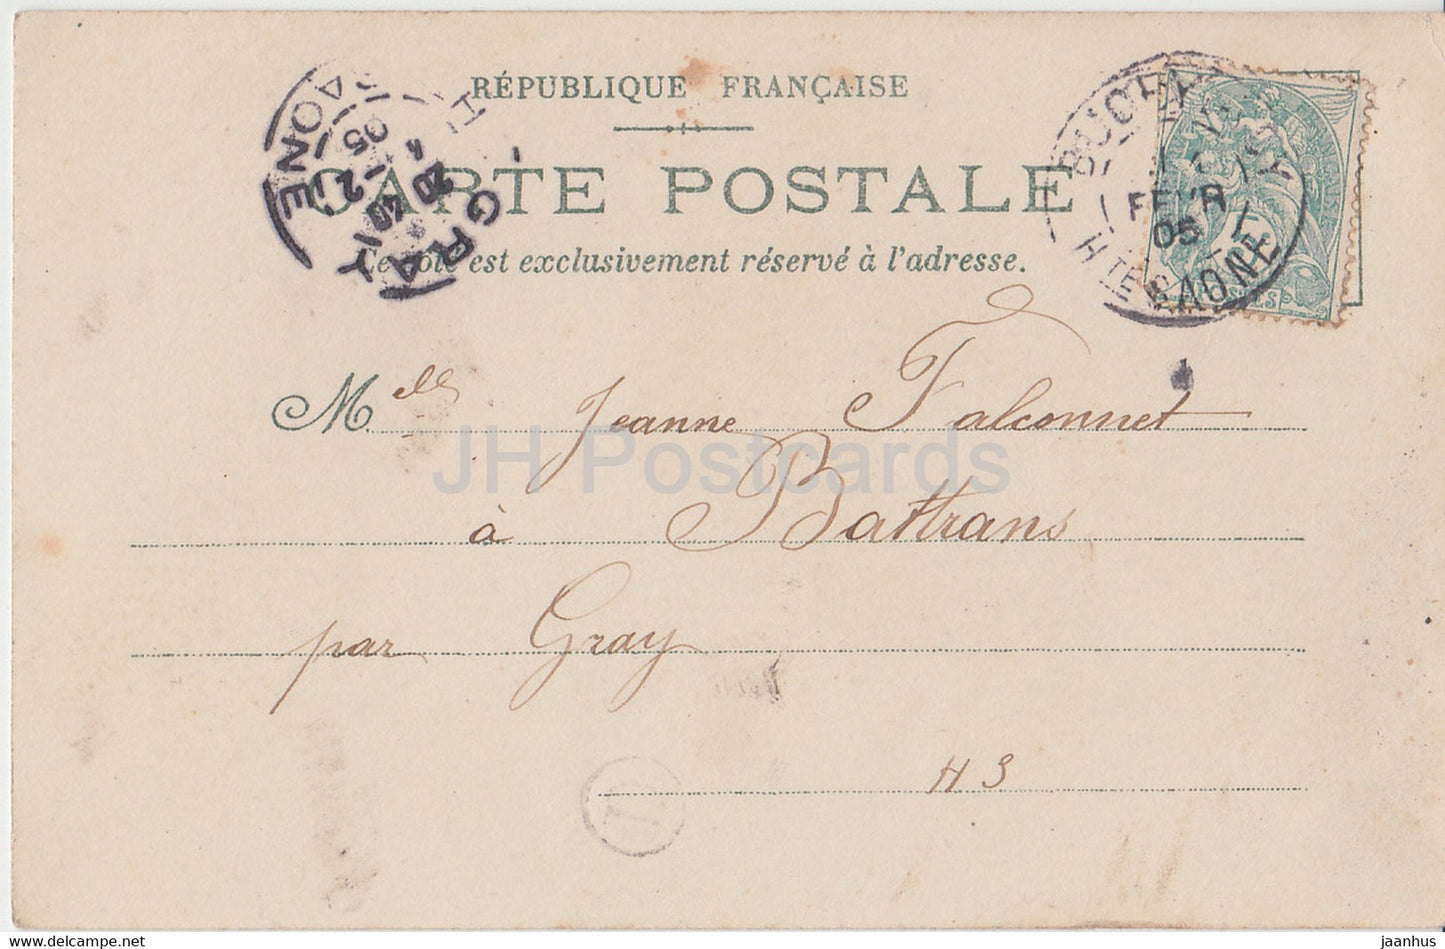 RÉPUBLIQUE FRANÇAISE
CARTE POSTALE
Ce côté est exclusivement réservé à l'adresse.
GRAY
SAONE
20 40
2
05
FEVR
05
HTE SAONE
Melle Jeanne Falconnet
à Battrans
par Gray
H S
JH Postcards
jaanhus
delcampe.net